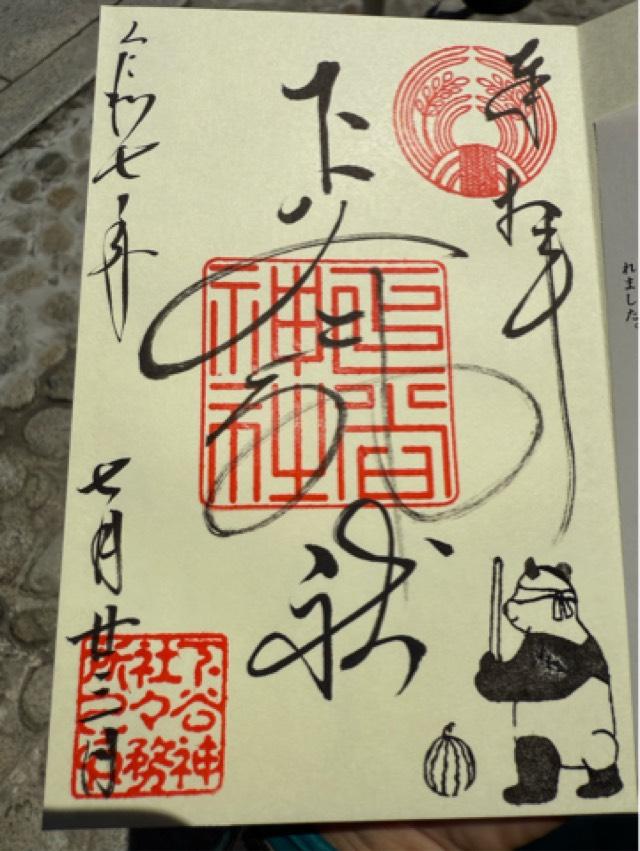 れました。
奉拝
下谷神社
下谷
神社
令和七年
七月廿二日
下谷神
社々務
所之印